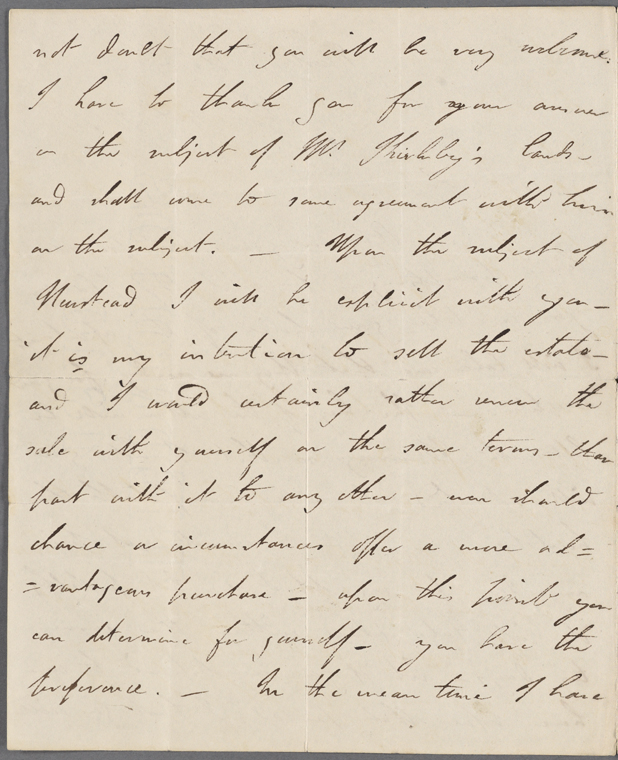 not doubt that you will be very welcome.
I have to thank you for your answer
on the subject of Mr. Kirkby's lands -
and shall come to some agreement with him
on the subject. — Upon the subject of
Newstead I will be explicit with you -
it is my intention to sell the estate -
and I would certainly rather renew the
sale with yourself on the same terms - than
part with it to any other - even should
chance or circumstances offer a more ad=
=vantageous purchase - upon this point you
can determine for yourself - you have the
preference. — In the mean time I have